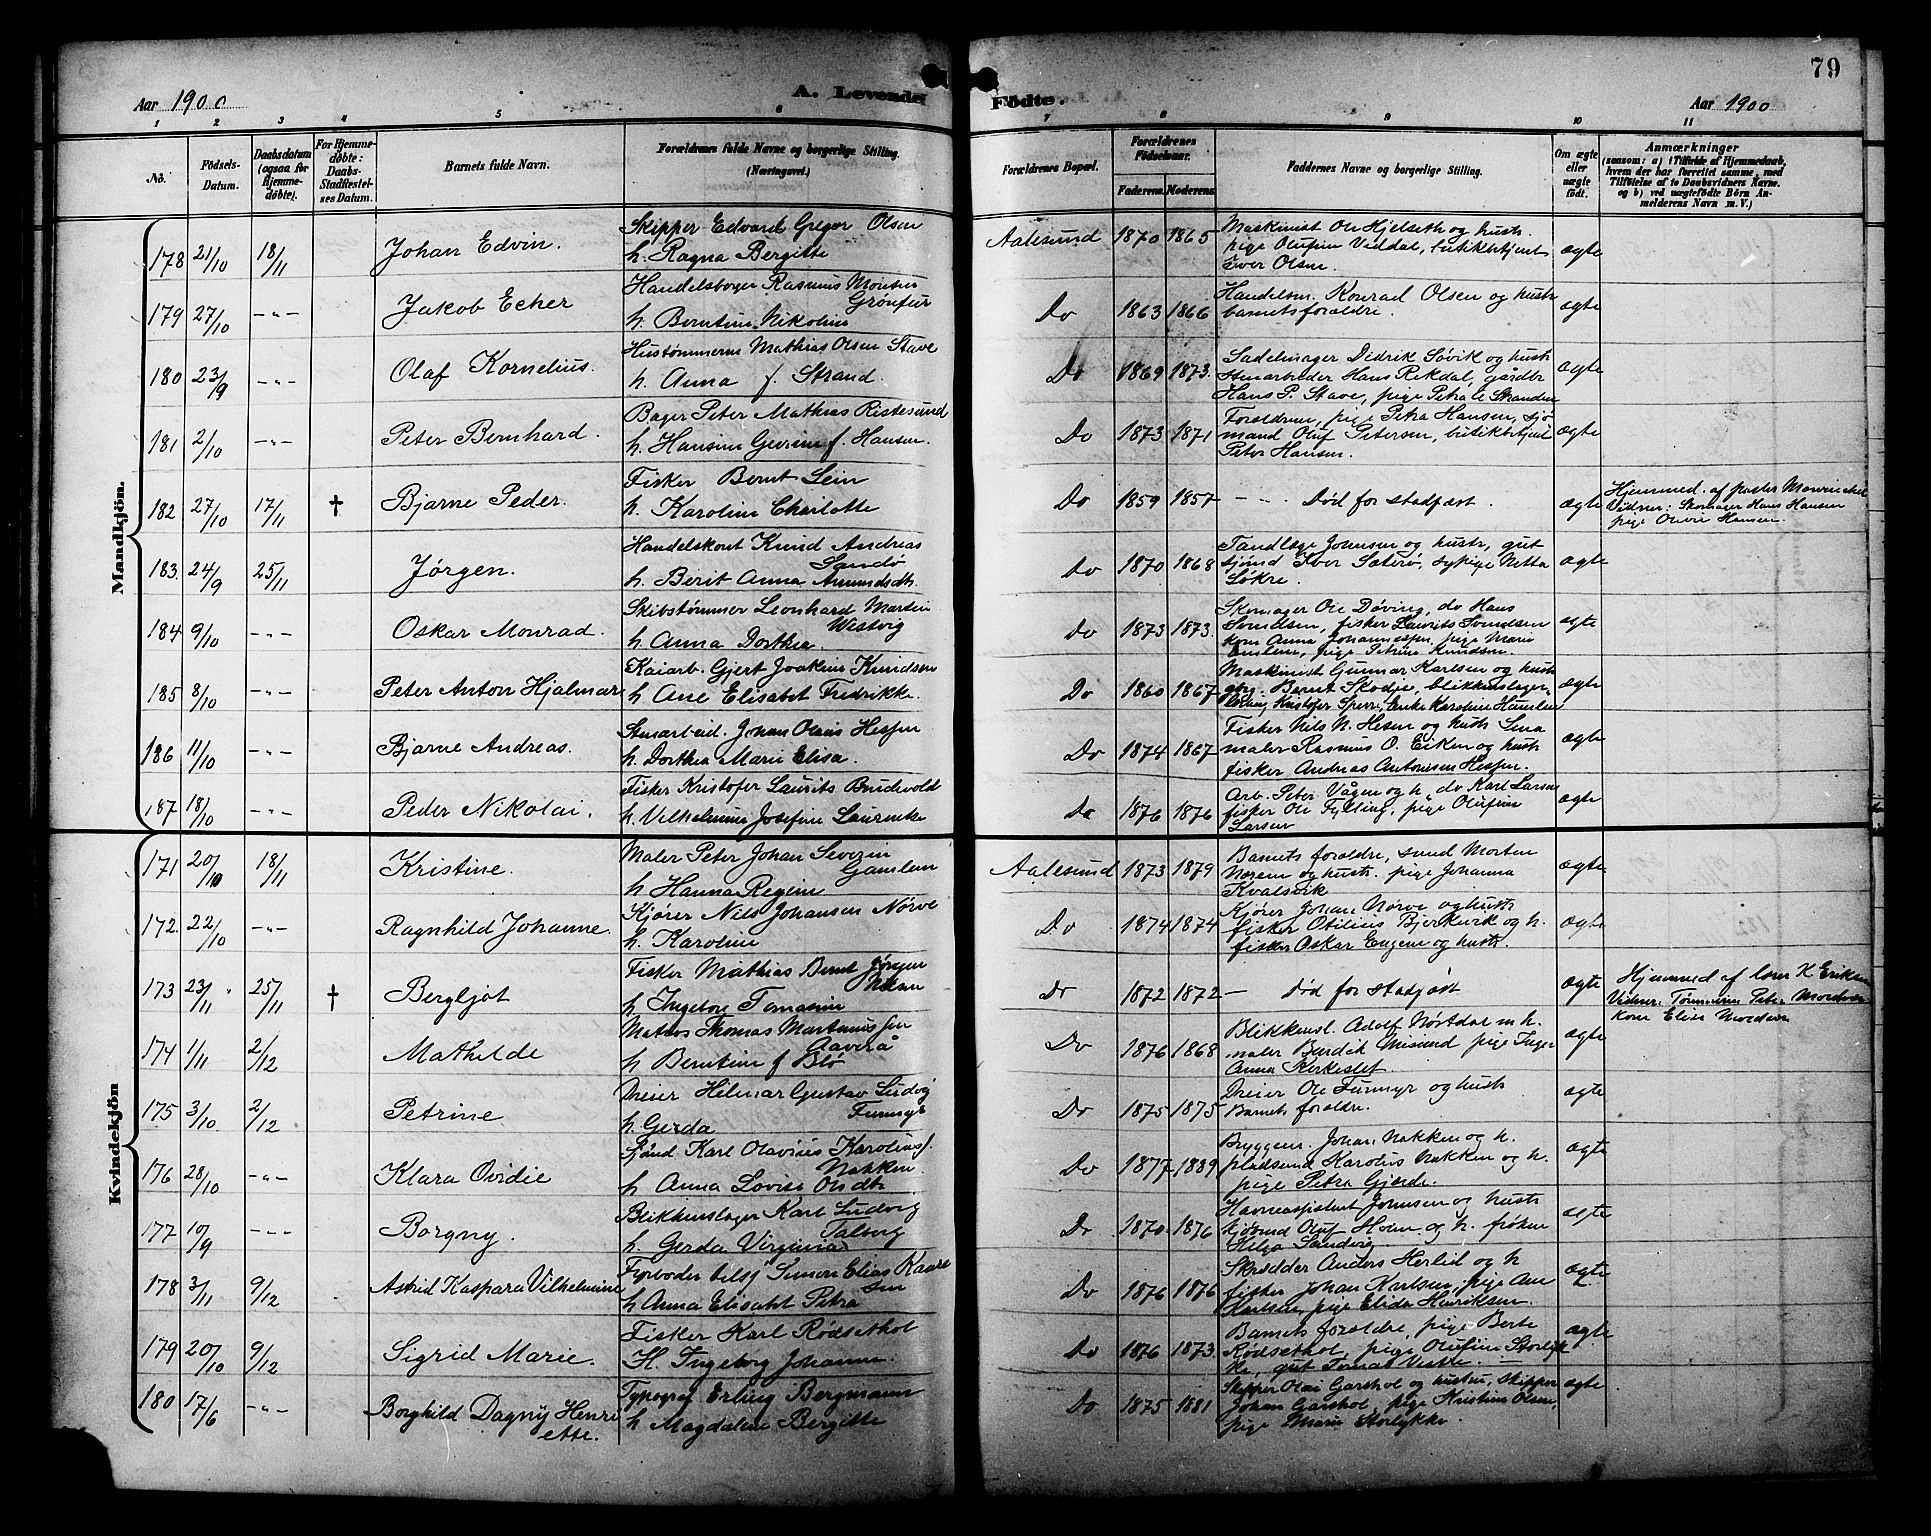 79
Aar 1900
A. Levende
Födte.
Aar 1900
1 2 3 4 5 6 7 8 9 10 11
No.
Födsels-
Datum.
Daabsdatum
(ogsaa for
Hjemme-
døbte).
For Hjemme-
døbte:
Daabs-
Stadfæstel-
ses Datum.
Barnets fulde Navn.
Forældrenes fulde Navne og borgerlige Stilling.
(Næringsvei.)
Forældrenes Bopæl.
Forældrenes
Födselsaar.
Faderens. Moderens.
Faddernes Navne og borgerlige Stilling.
Om ægte
eller
uægte
født.
Anmærkninger
(saasom: a) i Tilfælde af Hjemmedaab,
hvem der har forrettet samme, med
Tilföielse af to Daabsvidners Navne.
og b) ved uægtefödte Börn An-
melderens Navn m. V.)
Mandkjön.
178 21/10 18/11 Johan Edvin.
Skipper Edvard Gregor Olsen
h. Ragna Bergitte
Aalesund 1870 1865
Maskinist Ole Hjelseth og hustr.
pige Olufine Viddal, butikbetjent
Iver Olsen.
ægte
179 27/10 -"- Jakob Echer
Handelsborger Rasmus Monsen
Grönfur
h. Berntine Nikoline
Do 1863 1866
Handelsm. Konrad Olsen og hustr
barnets forældre.
ægte
180 23/9 -"- Olaf Kornelius.
Hustømmerm Mathias Olsen Stave
h. Anna f. Strand.
Do 1869 1873.
Sadelmager Didrik Søvik og hustr
stenarbeider Hans Rekdal, gårdbr
Hans P. Stave, pige Petra Stranden
ægte
181 2/10 -"- Peter Bernhard.
Bager Peter Mathias Ristesund
h. Hansine Gevine f. Hansen.
Do 1873 1871
Forældrene, pige Petra Hansen, sjø
mand Oluf Petersen, butikbetjent
Peter Hansen.
ægte
182 27/10 17/11 † Bjarne Peder.
Fisker Bernt Lein
h. Karoline Charlotte
Do 1859 1857
- "- Død før stadfæst.
ægte
Hjemmed. af pastor
Vidner: Skomager Hans Hansen
pige Hansen.
183. 24/9 25/11 Jørgen.
Handelskont Knud Andreas
Sandø
h. Berit Anna Amundsdtr.
Do 1870 1868
Tandlæge Johnsen og hustr, gut
sjømd Iver Sæterø, sypige Netta
Løkre.
ægte
184 9/10 -"- Oskar Monrad.
Skibstømmer Leonhard Martin
Westvig
h. Anna Dorthea.
Do 1873 1873.
Skomager Ole Døving, do Hans
Svendsen, fisker Laurits Svendsen
kone Anna Johannessen, pige Marie
pige Petrine Knudsen.
ægte
185 8/10 -"- Peter Anton Hjalmar
Kaiarb. Gjert Joakim Knudsen
h Ane Elisabet Fredrikke.
Do 1860 1867
Maskinist Gunnar Karlsen og hustr
gbg. Bernt Skodje, blikkenslager
Kristofer Enke Karoline Humlen
ægte
186 11/10 -"- Bjarne Andreas.
Stenarbeid. Johan Olaus Hessen
h. Dorthea Marie Elisa.
Do 1874 1867
Fisker Nils N. Hesen og hustr Lena
maler Rasmus O. Eiken og hustr
fisker Andreas Antonsen Hessen.
ægte
187 18/10 -"- Peder Nikolai.
Fisker Kristofer Laurits Budevold
h. Vilhelmine Josefine Laurentse
Do 1876 1876
Arb. Peter Vågen og h, do Karl Larsen
fisker Ole Fylling, pige Olufine
Larsen
ægte
Kvindekjön
171 20/10 18/11 Kristine.
Maler Peter Johan Severin
Gamlem
h Hanna Regine
Aalesund 1873 1879
Barnets forældre, svend Morten
Nerem og hustr. pige Johanna
Kvalsvik
ægte
172. 22/10 -"- Ragnhild Johanne.
Kjører Nils Johansen Nørve
h. Karoline
Do 1874 1874
Kjører Johan Nørve og hustr
fisker Otilius Bjerkevik og h.
fisker Oskar Eugene og hustr.
ægte
173 23/11 25/11 † Bergljot
Fisker Mathias Bernt Jørgen
h. Ingeborg Tomasine
Do 1872 1872
- Død før stadfæst
ægte
Hjemmed af lærer K Eriksen
Vidner: Tømmerm Peter
kone Elise
174 1/11 2/12 Mathilde
Matros Thomas Martinus
Aaverå
h Berntine f Blø
Do 1876 1868
Blikkensl. Adolf Nøstdal m h.
maler Bendik Misund pige Inger
Anna Kirkeslet.
ægte
175 3/10. 2/12 Petrine
Dreier Helmar Gustav Ludvig
Furmyr
h. Gerda
Do 1875 1875
Dreier Ole Furmyr og hustr
Barnets forældre.
ægte
176 28/10 -"- Klara Ovidie
Sjømd Karl Olavius Karolius
Nakken
h Anna Lovise Olsdtr
Do 1877 1889
Bryggem. Johan Nakken og h.
pladsmd Karolus Nakken og h.
pige Petra Gjerde.
ægte
177 10/9 -"- Borgny.
Blikkenslager Karl Ludvig
Talberg
h. Gerda Virginia
Do 1870. 1876
Havneassistent Johnsen og hustr
sjømd Oluf Holm og h. frøken
Helga Sandvig
ægte
178 3/11 9/12 Astrid Kaspara Vilhelmine
Fyrbøder Simon Elias Kaare
sen
h Anna Elisabet Petra
Do 1876 1876
Skrædder Anders Herlid og h
fisker Johan Karlsen, pige Ane
Karlsen, pige Elida Henriksen.
ægte
179 20/10 9/12 Sigrid Marie.
Fisker Karl Rødsethol
H. Ingeborg Johanne.
Do 1876 1873.
Barnets forældre, pige Berte
Rødsethol, pige Olufine Storlyk
ke, gut Tomas
ægte
180 17/6 -"- Borghild Dagny Henri
ette.
Typograf Erling Bergmann
h Magdalene Bergitte
Do 1875 1881
Skipper Olai Garshol og hustru, skipper
Johan Garshol, pige Kristine Olsen,
pige Marie Storlykke.
ægte